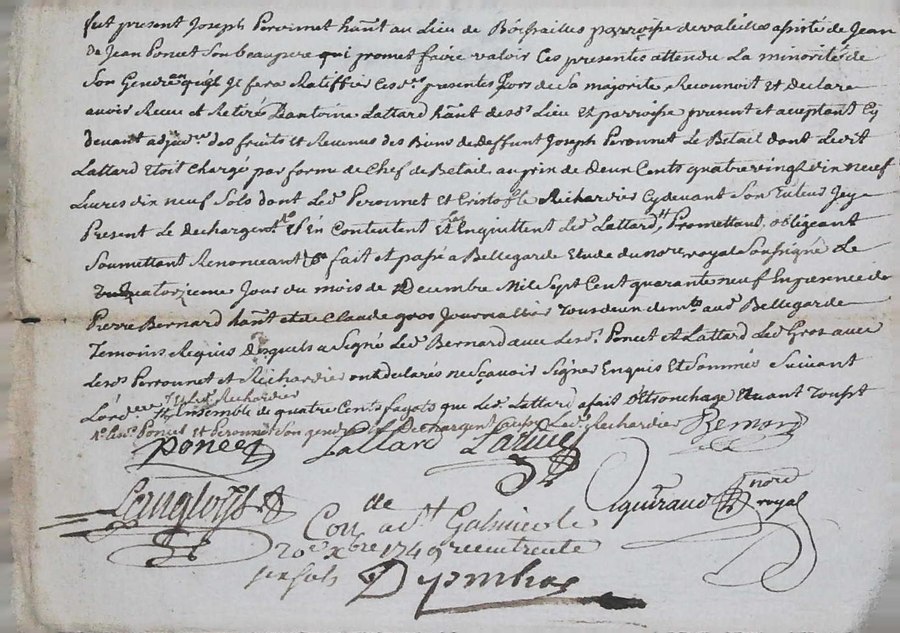 fut present Joseph Peronnet hant au Lieu de Boissailles parroisse de valeilles assisté de Jean
de Jean Poncet Son beaupere qui promet faire valoir Ces presentes attendu La minorité de
Son Gendre et quil Se fera Ratiffier Cesd presentes Lors de Sa majorité Reconnoit Et Declare
avoir Receu et Retiré Dantoine Lattard hant desd Lieu et parroisse present et acceptant Cy
devant adjre des fruits et Revenus des Biens de deffunt Joseph Peronnet Le Betail dont Ledit
Lattard Etoit Chargé par forme de Chef de Betail, au prix de Deux Cents quatre vingt dix neuf
Livres dix neuf Sols dont Led Peronnet et Cristofle Richardier Cy devant Son Tuteur Icy
Present Le dechargent Et En Contentent Et Enquittent Led Lattard Promettant, obligeant
Soumettant Renonceant fait et passé a Bellegarde Etude du nore royal Soussigné Le
quatorzieme Jour du mois de Decembre Mil Sept Cent quarante neuf En presence de
Pierre Bernard hant et de Claude gros Journallier Tous deux aud Bellegarde
Temoins Requis Desquels a Signé Led Bernard avec Lesd Poncet et Lattard Led Gros avec
Lesd Perronnet et Richardier ont declarés ne Sçavoir Signer Enquis Et Sommés Suivant
Lordce et Led Richardier
Ensemble de quatre Cents fagots que Led Lattard a fait d'Etronchage
Lesd Poncet et Peronnet Son gendre Dechargent aussy Led Richardier
Poncet Lattard Bernard
nore
royal
Con de
20e xbre 1749
Six Sols